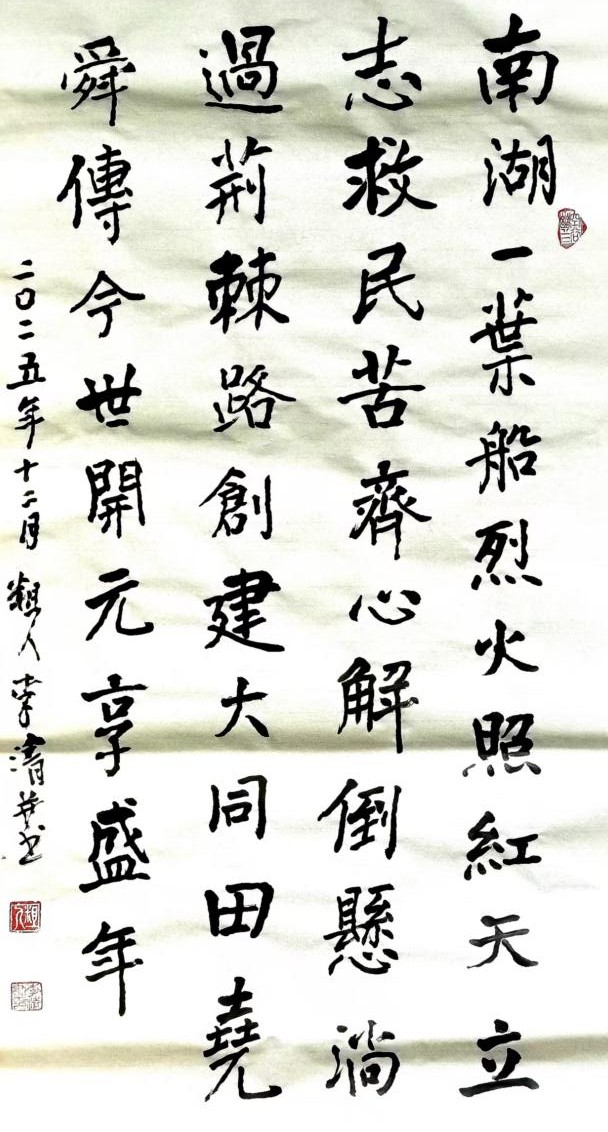 南湖一葉船烈火照紅天立
志救民苦齊心解倒懸淌
過荊棘路創建大同田堯
舜傳今世開元享盛年
二〇二五年十二月 粗人李清華书